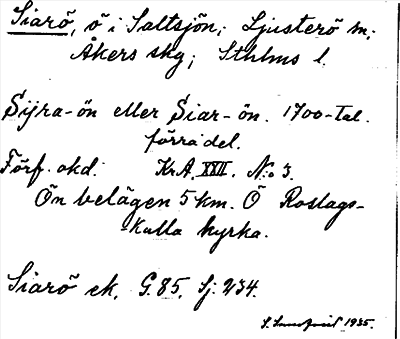 Siarö, ö i Saltsjön; Ljusterö sn;
Åkers skg; Sthlms l.
Sijra-ön eller Siar-ön. 1700-tal.
förra del.
Förf. okd. Kr.A. XXII. N:o 3.
Ön belägen 5 km. Ö Roslags-
-Kulla kyrka.
Siarö ek. G.85. Sj. 234.
1935.